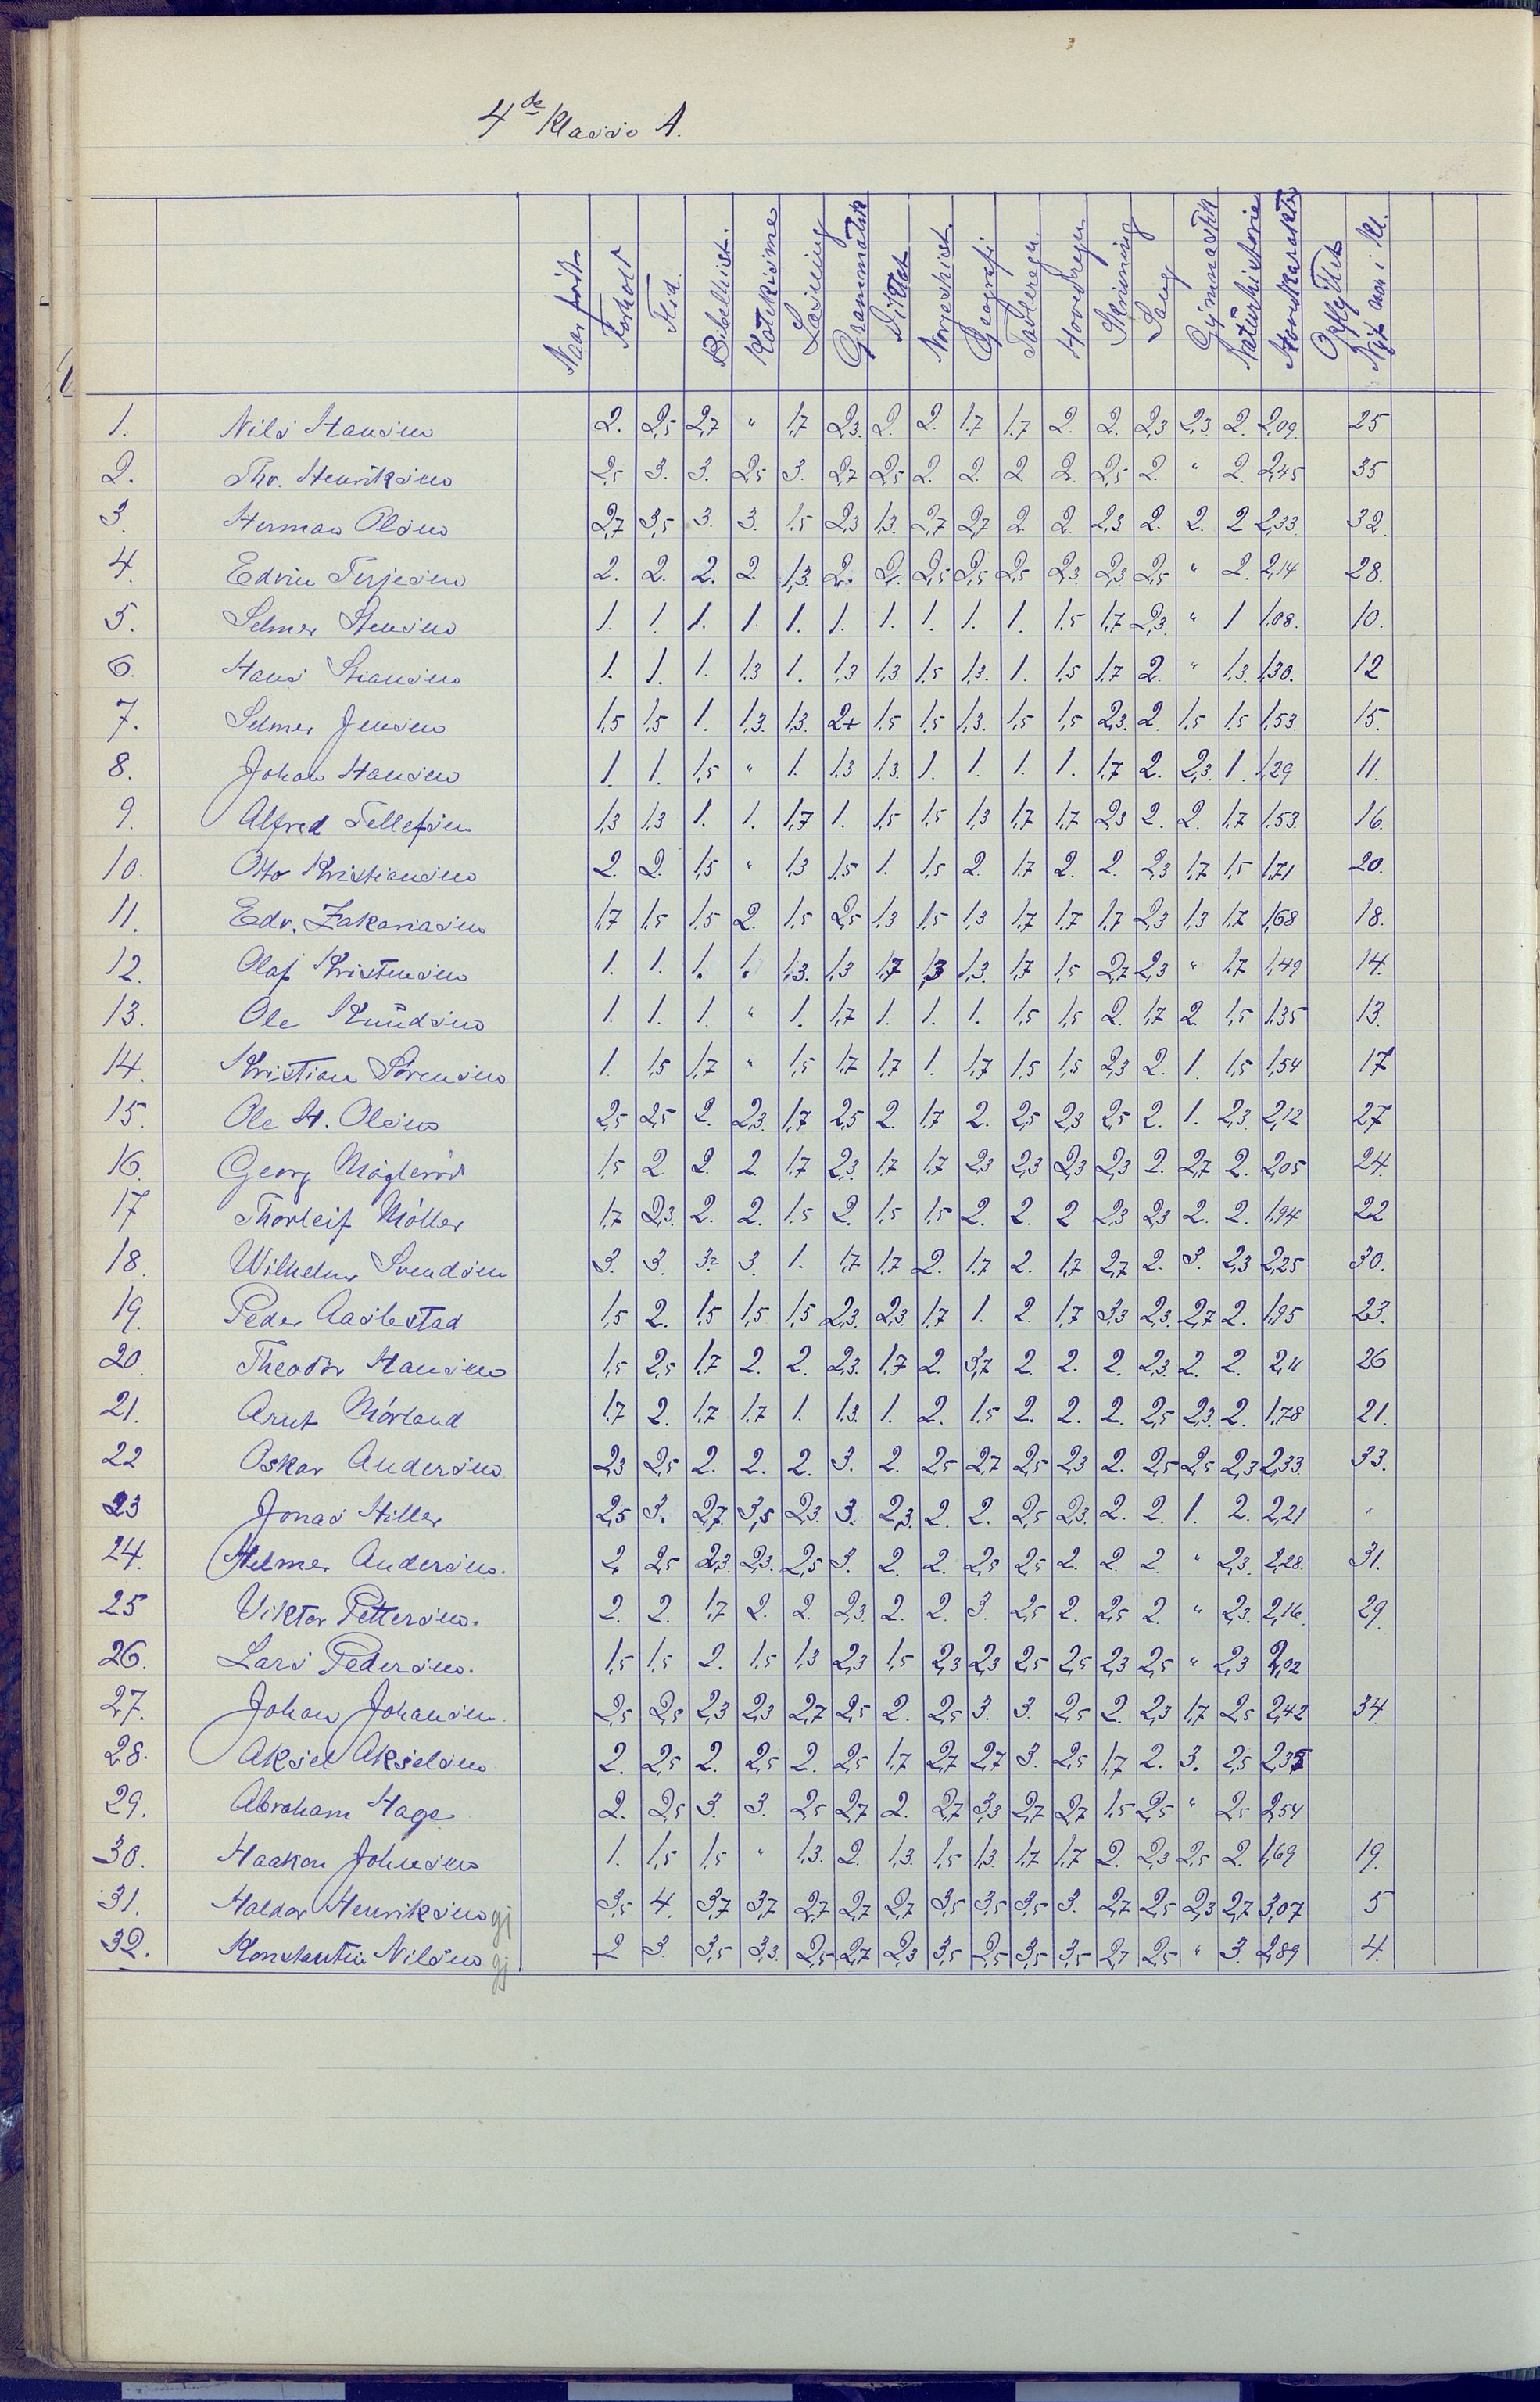 4de Klasse A.
Naar født Forhold Flid. Bibelhist. Katekisme Læsning Grammatik Diktat Norgeshist. Geografi Tavleregn. Hovedregn. Skrivning Sang Gymnastik Naturhistorie Hovedkarakter Opflyttet Nyt No i Kl.
1. Nils Hansen 2. 2,5 2,7 " 1,7 2,3. 2. 2. 1,7 1,7 2. 2. 2,3 2,3. 2. 2,09. 25
2. Thv. Henriksen 2,5 3. 3. 2,5 3. 2,7 2,5 2. 2. 2. 2. 2,5 2. " 2. 2,45 35
3. Herman Olsen 2,7 3,5 3. 3. 1,5 2,3 1,3. 2,7 2,7 2. 2. 2,3 2. 2. 2 2,33. 32.
4. Edvin Terjesen 2. 2. 2. 2. 1,3. 2. 2. 2,5 2,5 2,5 2,3 2,3 2,5 " 2. 2,14 28.
5. Selmer Stensen 1. 1. 1. 1. 1. 1. 1. 1. 1. 1. 1,5 1,7 2,3. " 1 1,08. 10.
6. Hans Stiansen 1. 1. 1. 1,3 1. 1,3 1,3. 1,5 1,3. 1. 1,5 1,7 2. " 1,3. 1,30. 12
7. Selmer Jensen 1,5 1,5 1. 1,3. 1,3. 2+ 1,5 1,5 1,3. 1,5 1,5 2,3. 2. 1,5 1,5 1,53. 15.
8. Johan Hansen 1. 1. 1,5 " 1. 1,3 1,3. 1. 1. 1. 1. 1,7 2. 2,3. 1. 1,29 11.
9. Alfred Tellefsen 1,3 1,3 1. 1. 1,7 1. 1,5 1,5 1,3 1,7 1,7 2,3 2. 2. 1,7 1,53. 16.
10. Otto Kristiansen 2. 2. 1,5 " 1,3 1,5 1. 1,5 2. 1,7 2. 2. 2,3 1,7 1,5 1,71 20.
11. Edv. Zakariasen 1,7 1,5 1,5 2. 1,5 2,5 1,3 1,5 1,3 1,7 1,7 1,7 2,3 1,3 1,7 1,68 18.
12. Olaf Kristensen 1. 1. 1. 1. 1,3. 1,3 1,7 1,3 1,3. 1,7 1,5 2,7 2,3 " 1,7 1,49 14.
13. Ole Knudsen 1. 1. 1. " 1. 1,7 1. 1. 1. 1,5 1,5 2. 1,7 2. 1,5 1,35 13.
14. Kristian Sørensen 1. 1,5 1,7 " 1,5 1,7 1,7 1. 1,7 1,5 1,5 2,3 2. 1. 1,5 1,54 17
15. Ole H. Olsen 2,5 2,5 2. 2,3. 1,7 2,5 2. 1,7 2. 2,5 2,3 2,5 2. 1. 2,3. 2,12 27
16. Georg Møglerød 1,5 2. 2. 2. 1,7 2,3. 1,7 1,7 2,3 2,3 2,3 2,3 2. 2,7 2. 2,05 24.
17 Thorleif Møller 1,7 2,3. 2. 2. 1,5 2. 1,5 1,5 2. 2. 2 2,3 2,3 2. 2. 1,94 22
18. Wilhelm Svendsen 3. 3. 3,2 3. 1. 1,7 1,7 2. 1,7 2. 1,7 2,7 2. 3. 2,3 2,25 30.
19. Peder Aaslestad 1,5 2. 1,5 1,5 1,5 2,3. 2,3. 1,7 1. 2. 1,7 3,3 2,3. 2,7 2. 1,95 23.
20. Theodor Hansen 1,5 2,5 1,7 2. 2. 2,3. 1,7 2. 3,7 2. 2. 2. 2,3. 2. 2. 2,11 26
21. Arnt Mørland 1,7 2. 1,7 1,7 1. 1,3. 1. 2. 1,5 2. 2. 2. 2,5 2,3. 2. 1,78 21.
22 Oskar Andersen 2,3 2,5 2. 2. 2. 3. 2. 2,5 2,7 2,5 2,3 2. 2,5 2,5 2,3 2,33. 33.
23 Jonas Hiller 2,5 3. 2,7. 3,5 2,3. 3. 2,3. 2. 2. 2,5 2,3. 2. 2. 1. 2. 2,21 "
24. Helmer Andersen. 2. 2,5 2,3. 2,3. 2,5 3. 2. 2. 2,5 2,5 2. 2. 2. " 2,3. 2,28. 31.
25 Viktor Pettersen. 2. 2. 1,7 2. 2. 2,3. 2. 2. 3. 2,5 2. 2,5 2. " 2,3. 2,16. 29.
26. Lars Pedersen. 1,5 1,5 2. 1,5 1,3 2,3 1,5 2,3 2,3 2,5 2,5 2,3 2,5 " 2,3 2,02
27. Johan Johansen. 2,5 2,5 2,3 2,3 2,7 2,5 2. 2,5 3. 3. 2,5 2. 2,3 1,7 2,5 2,42 34.
28. Aksel Akselsen 2. 2,5 2. 2,5 2. 2,5 1,7 2,7 2,7 3. 2,5 1,7 2. 3. 2,5 2,35
29. Abraham Hage 2. 2,5 3. 3. 2,5 2,7 2. 2,7 3,3 2,7 2,7 1,5 2,5 " 2,5 2,54
30. Haakon Johnsen 1. 1,5 1,5 " 1,3. 2. 1,3. 1,5 1,3. 1,7 1,7 2. 2,3 2,5 2. 1,69 19.
31. Haldor Henriksen gj 3,5 4. 3,7 3,7 2,7 2,7 2,7 3,5 3,5 3,5 3. 2,7 2,5 2,3 2,7 3,07 5
32. Konstantin Nilsen gj 2 3. 3,5 3,3 2,5 2,7 2,3 3,5 2,5 3,5 3,5 2,7 2,5 " 3. 2,89 4.